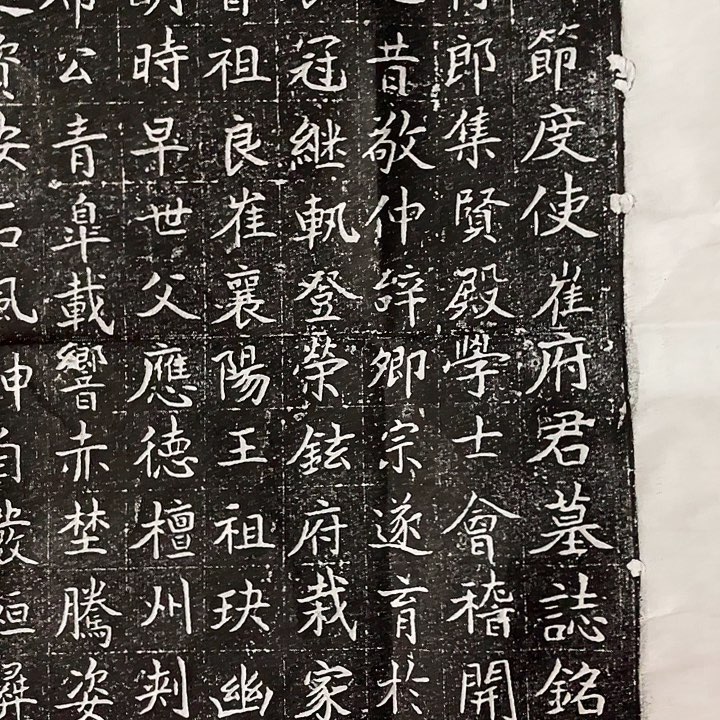 節度使崔府君墓誌銘
郎集賢殿學士會稽開
昔敬仲辝卿宗遂育於
冠継軌登榮鉉府栽家
祖良崔襄陽王祖玦幽
時早世父應德檀州刾
公青皐載響赤埜騰姿
資安石風神自嚴桓彝